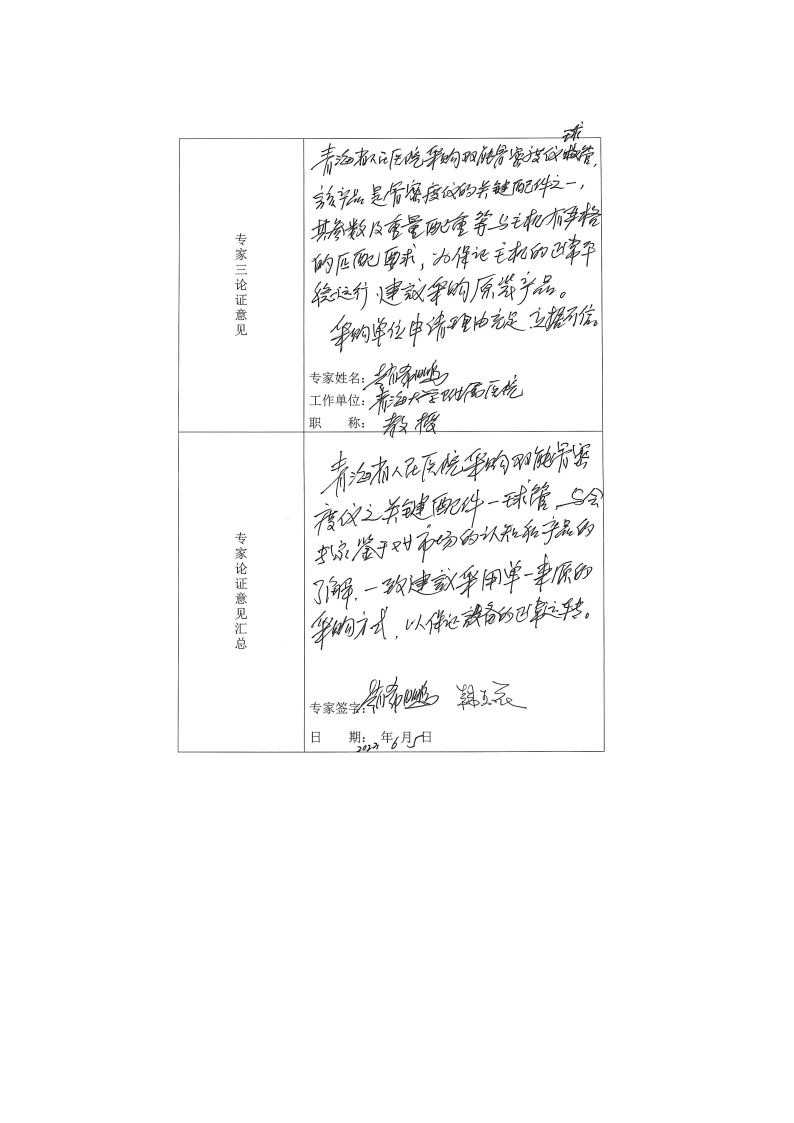 专家三论证意见
球
青海省人民医院采购双能骨密度仪球管,
该产品是骨密度仪的关键配件之一,
其参数及重量配重等与主机有严格
的匹配要求,为保证主机的正常平
稳运行,建议采购原装产品。
采购单位申请理由充足,立据可信。
专家姓名:
工作单位:青海大学附属医院
职 称:教授
专家论证意见汇总
青海省人民医院采购双能骨密
度仪之关键配件—球管,与会
专家鉴于对市场的认知和产品的
了解,一致建议采用单一来源的
采购方式,以保证设备的正常运转。
专家签字:
日 期:2023年6月5日